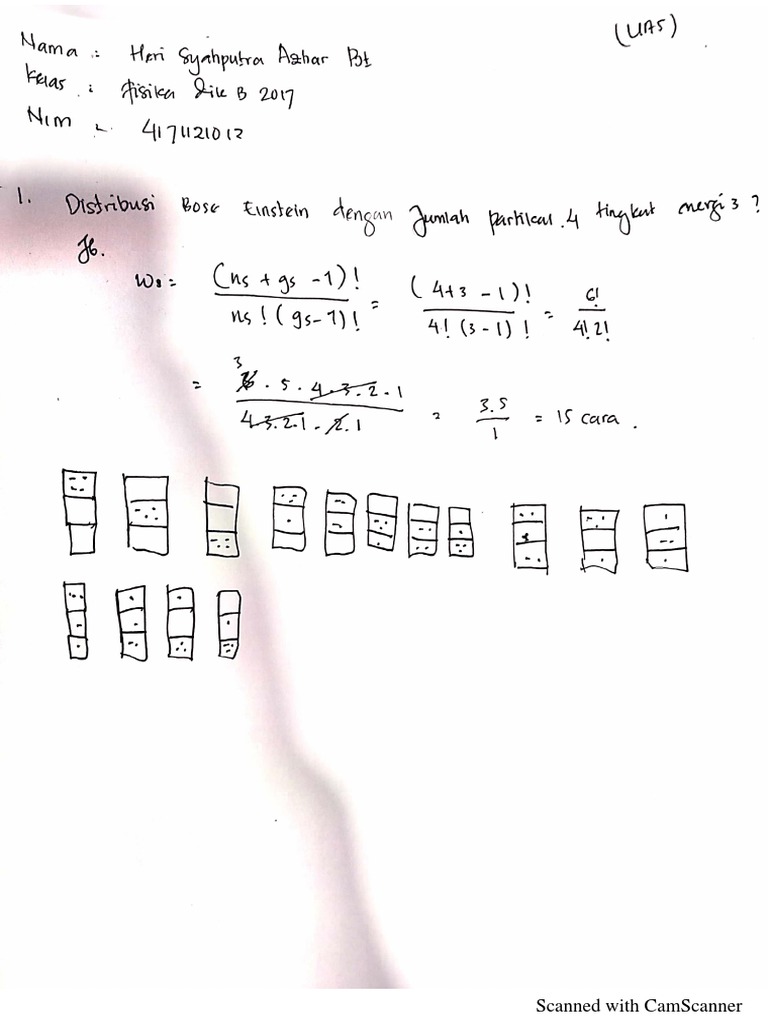 (UAS)
Nama : Heri Syahputra Azhar Bt
Kelas : Fisika Dik B 2017
NIM : 4171121012
1. Distribusi Bose Einstein dengan Jumlah partikel. 4 tingkat energi 3 ?
Jb.
Ws = (ns + gs - 1)! / ns! (gs-1)! = (4+3 - 1)! / 4! (3-1)! = 6! / 4! 2!
= 3 6 . 5 . 4 . 3 . 2 . 1 / 4.3.2.1 . 2.1 = 3.5 / 1 = 15 cara .
Scanned with CamScanner